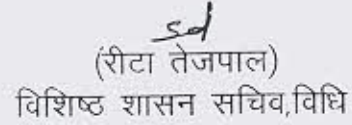 sd
(रीटा तेजपाल)
विशिष्ठ शासन सचिव,विधि